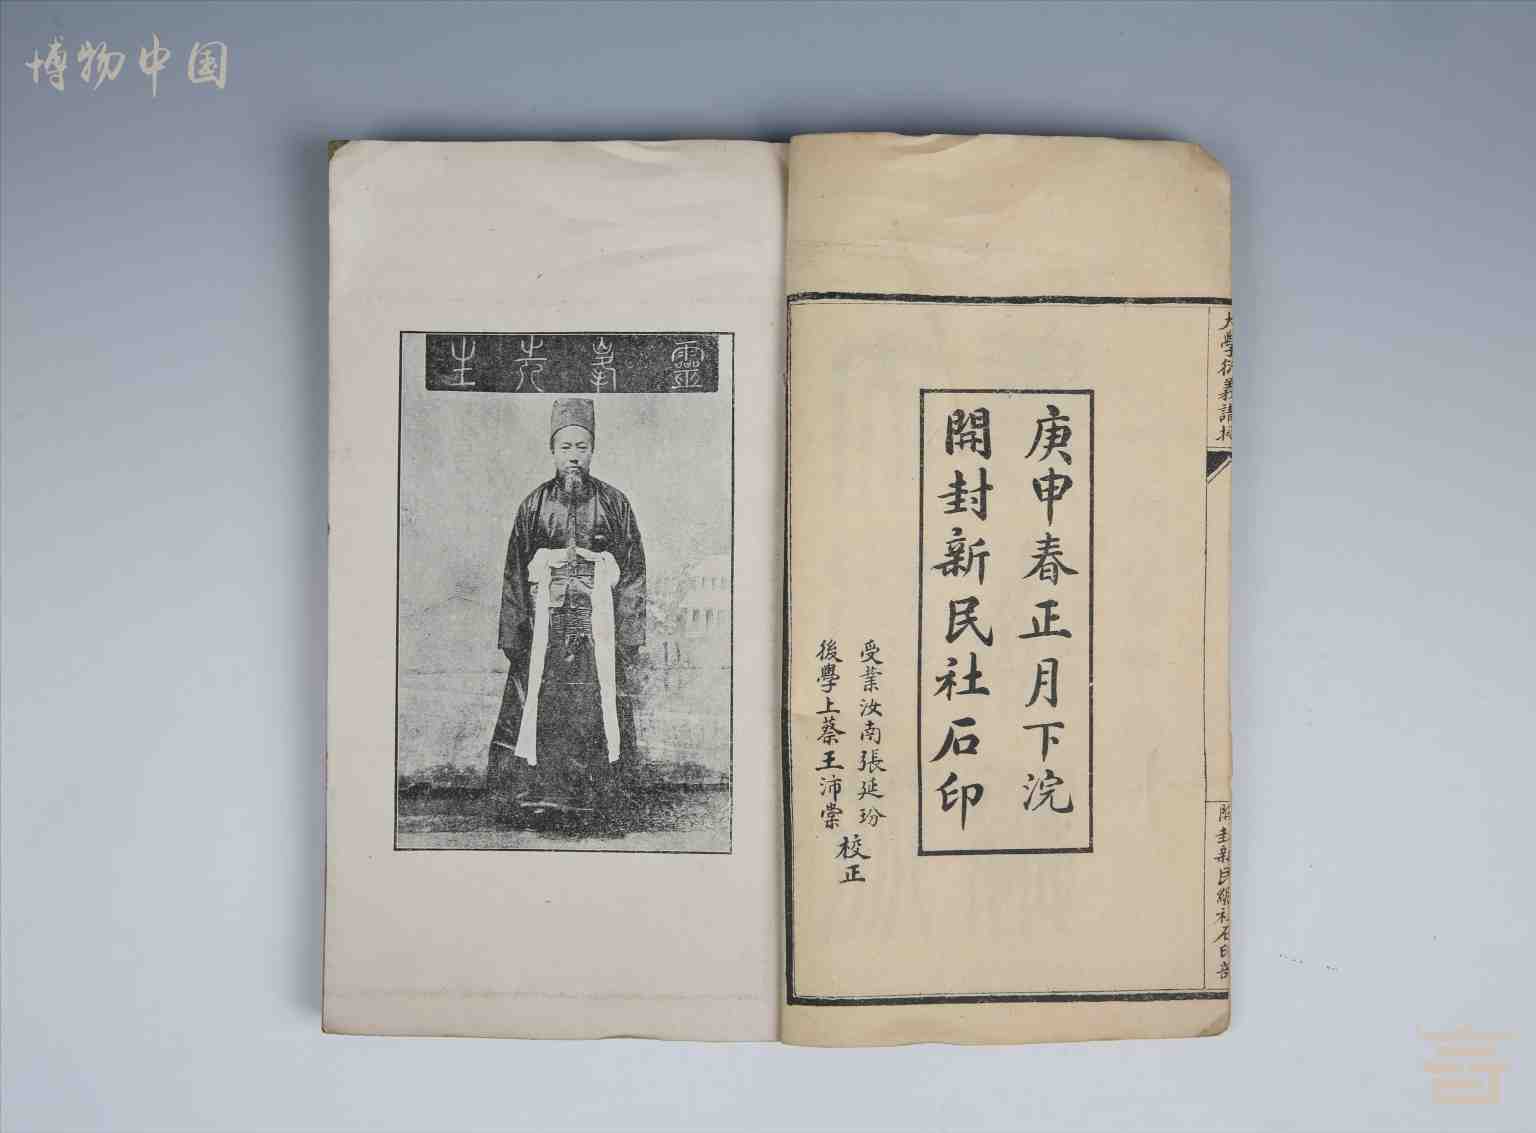 博物中国
大學衍義講
庚申春正月下浣
開封新民社石印
受業汝南張延玢
後學上蔡王沛棠
校正
開封新民總社石印部
靈峯先生